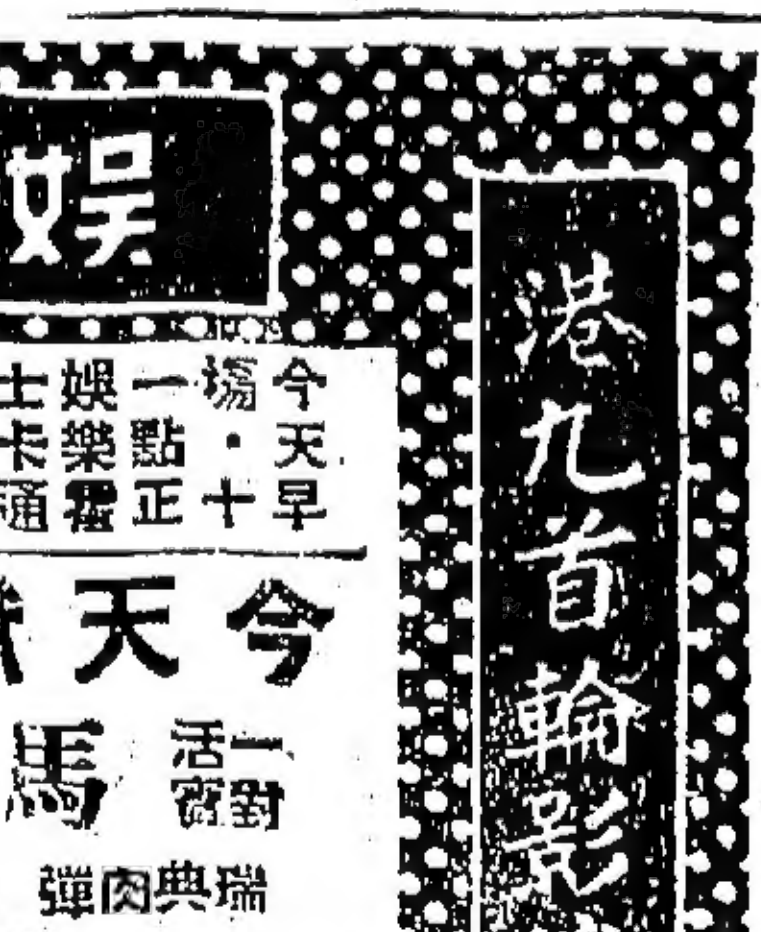 港九首輪影
娛
今天早
場・十
一點正
娛樂霍
士卡通
今天
一對
活寶
馬
瑞典肉彈